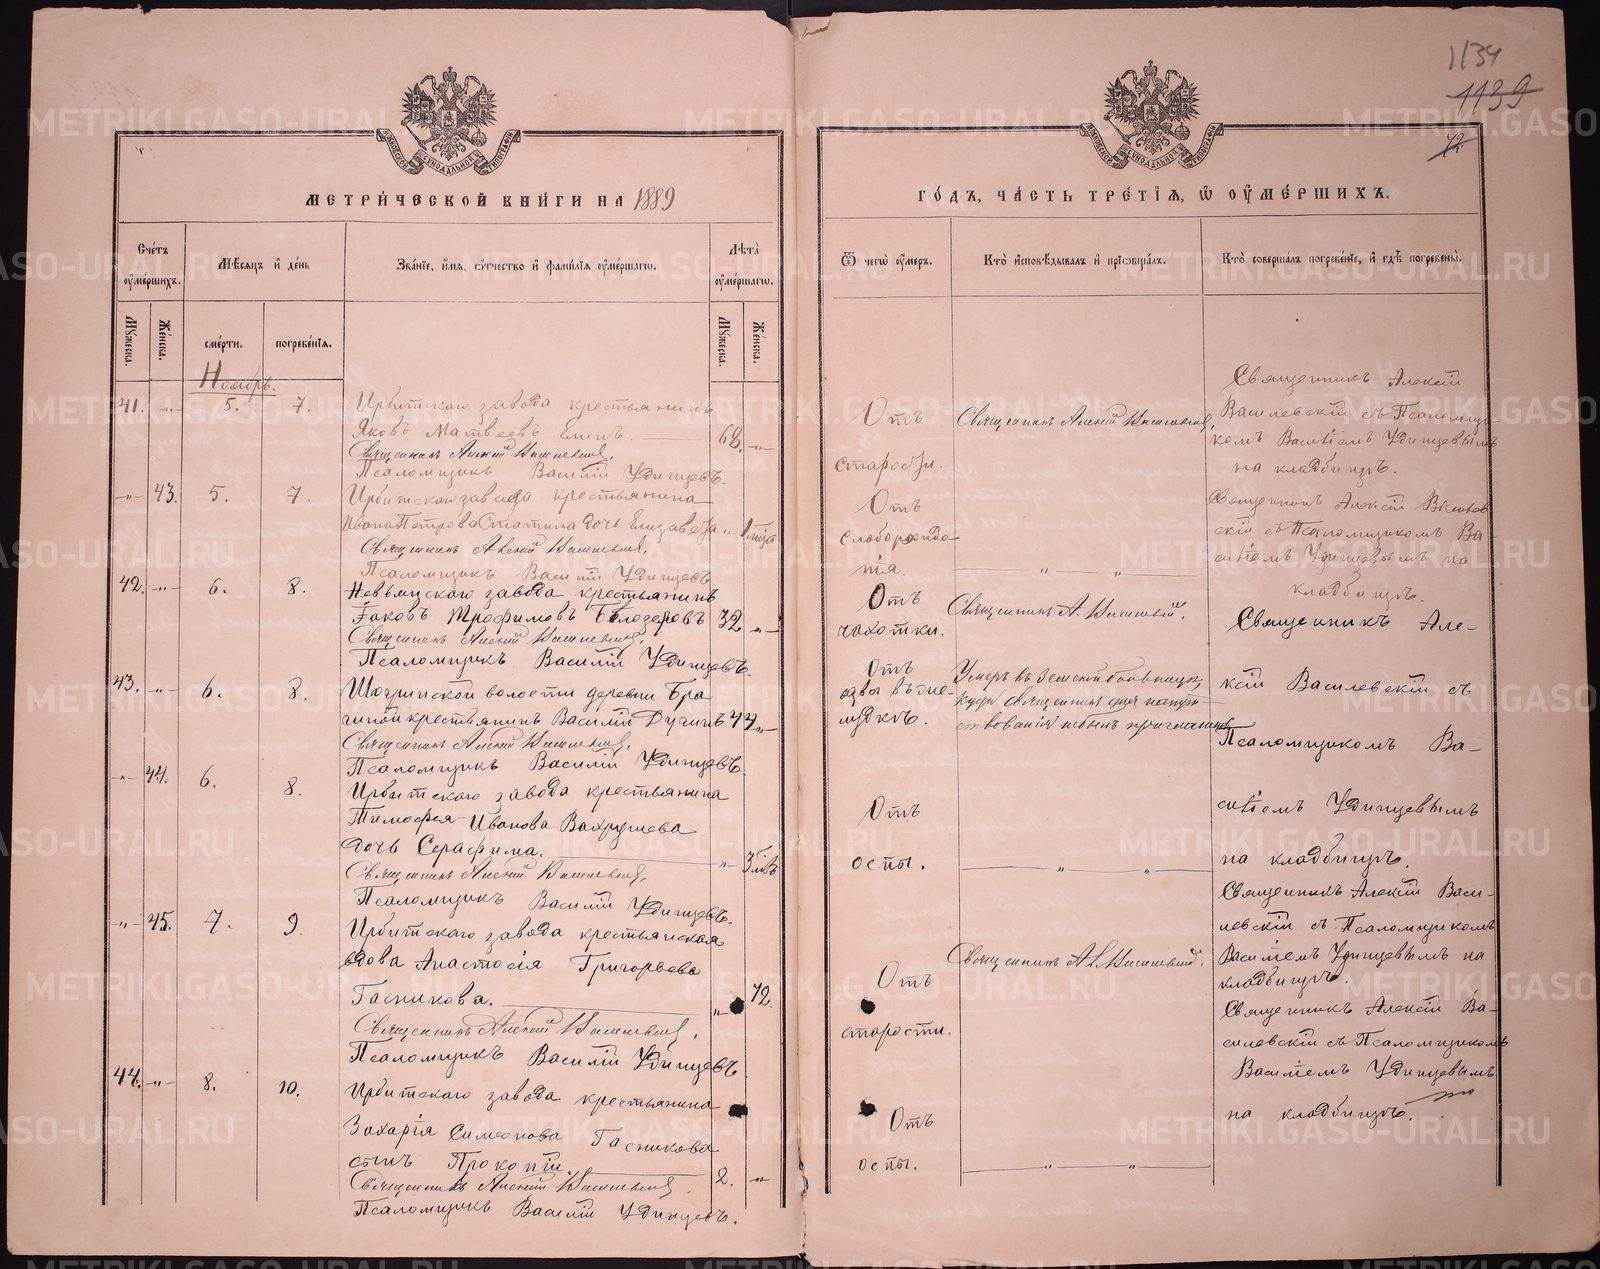 1134
1139
72
МЕТРИ́ЧЕСКОЙ КНИ́ГИ НА 1889
ГО́ДЪ, ЧА́СТЬ ТРЕ́ТІЯ, Ѿ ОУ҆МЕ́РШИХЪ.
Сче́тъ оу҆ме́ршихъ.
Мѣ́сяцъ и҆ де́нь
Зва́ніе, и҆́мя, ѻ҆́тчество и҆ фами́лія оу҆ме́ршагѡ.
Лѣ́та оу҆ме́ршагѡ.
Ѿ чегѡ̀ оу҆́меръ.
Кто̀ и҆сповѣ́дывалъ и҆ прїѡбща́лъ.
Кто̀ соверша́лъ погребе́ніе, и҆ гдѣ̀ погребены̀.
Мꙋ́жеска.
Же́нска.
сме́рти.
погребе́нія.
Мꙋ́жеска.
Же́нска.
Ноябрь.
41. -„- 5. 7. Ирбитскаго завода крестьянинъ
Яковъ Матвеевъ Елинъ. 68. -„-
Священникъ Алексій Василевскій.
Псаломщикъ Василій Удинцевъ.
Отъ
старости.
Священникъ Алексій Василевскій.
Священникъ Алексій
Василевскій съ Псаломщи-
комъ Василіемъ Удинцевымъ
на кладбищѣ.
-„- 43. 5. 7. Ирбитскаго завода крестьянина
Ивана Петрова Статина дочь Елизавета -„-
Священникъ Алексій Василевскій.
Псаломщикъ Василій Удинцевъ
Отъ
слаборожде-
нія.
„ „
Священникъ Алексій Василев-
скій съ Псаломщикомъ Ва-
силіемъ Удинцевымъ на
кладбищѣ.
42. -„- 6. 8. Невьянскаго завода крестьянинъ
Іаковъ Трофимовъ Бѣлозеровъ 32 -„-
Священникъ Алексій Василевскій.
Псаломщикъ Василій Удинцевъ.
Отъ
чахотки.
Священникъ А. Василевскій.
Священникъ Але-
43. -„- 6. 8. Шогринской волости деревни Бра-
гиной крестьянинъ Василій Дугинъ 44 -„-
Священникъ Алексій Василевскій.
Псаломщикъ Василій Удинцевъ.
Отъ
язвы въ же-
лудкѣ.
Умеръ въ Земской больницѣ,
куда священникъ для напут-
ствованія не былъ приглашенъ
ксій Василевскій съ
Псаломщикомъ Ва-
-„- 44. 6. 8. Ирбитскаго завода крестьянина
Тимофея Иванова Вахрушева
дочь Серафима. -„-
Священникъ Алексій Василевскій.
Псаломщикъ Василій Удинцевъ.
Отъ
оспы.
„ „
силіемъ Удинцевымъ
на кладбищѣ.
-„- 45. 7. 9. Ирбитскаго завода крестьянская
вдова Анастасія Григорьева
Гасникова. „ 72.
Священникъ Алексій Василевскій.
Псаломщикъ Василій Удинцевъ.
Отъ
старости.
Священникъ А. Василевскій.
Священникъ Алексій Васи-
левскій съ Псаломщикомъ
Василіемъ Удинцевымъ на
кладбищѣ.
44. -„- 8. 10. Ирбитскаго завода крестьянина
Захарія Симеонова Гасникова
сынъ Прокопій. 2. -„-
Священникъ Алексій Василевскій.
Псаломщикъ Василій Удинцевъ.
Отъ
оспы.
„ „
Священникъ Алексій Ва-
силевскій съ Псаломщикомъ
Василіемъ Удинцевымъ
на кладбищѣ.
METRIKI.GASO-URAL.RU